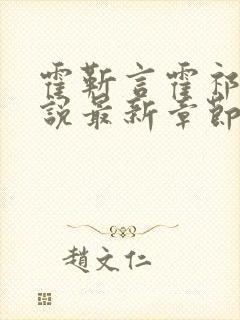 霍靳言霍祁
說最新章節
趙文仁